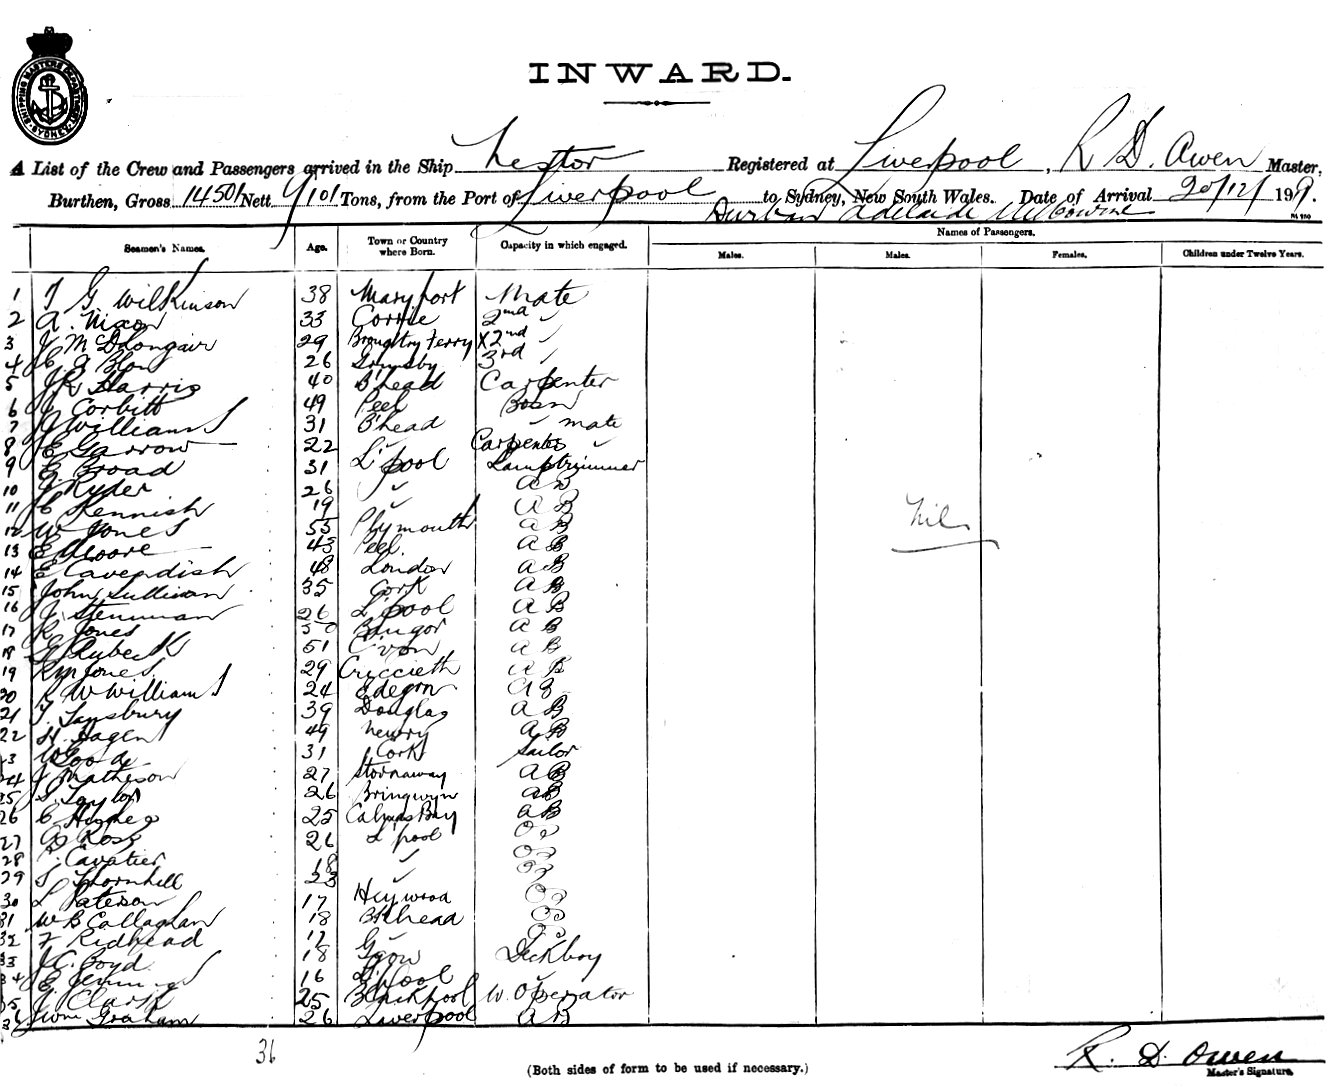 INWARD.
SHIPPING MASTERS DEPARTMENT SYDNEY
A List of the Crew and Passengers arrived in the Ship Nestor Registered at Liverpool, R D. Owen Master,
Burthen, Gross 14501 Nett 9101 Tons, from the Port of Liverpool to Sydney, New South Wales. Date of Arrival 20/12/ 191
Durban Adelaide Melbourne
Seamen's Names. Age. Town or Country where Born. Capacity in which engaged. Names of Passengers.
Males. Males. Females. Children under Twelve Years.
1 T G. Wilkinson 38 Maryport Mate
2 A. Nixon 33 Corrie 2nd "
3 29 Broughty Ferry X2nd "
4 26 Grimsby 3rd "
5 Harris 40 B'head Carpenter
6 Corbitt 49 Peel Bosn
7 Williams 31 B'head " mate
8 E Garrow 22 " Carpenter "
9 E. Broad 31 L'pool Lamptrimmer
10 Ryder 26 " A B
11 Kennish 19 " A B
12 W Jones 55 Plymouth A B
13 E Moore 45 Peel A B
14 E Cavendish 48 London A B
15 John Sullivan 35 Cork A B
16 26 L'pool A B
17 R Jones 50 Bangor A B
18 51 C'von A B
19 R M Jones 29 Criccieth A B
20 R W Williams 24 A B
21 T. Lansbury 39 Douglas A B
22 H. Hagen 49 Newry A B
3 31 Cork Sailor
24 J Matheson 27 Stornaway A B
25 Taylor 26 Bringwyn A B
26 Hughes 25 A B
27 Ross 26 L'pool
28 Cavalier 18 "
29 Thornhill 23 "
30 L Pateson 17 Heywood
31 W B Callaghan 18 B'khead
32 F Ridhead 17 "
33 J C. Boyd 18 Deckboy
34 E 16 L'pool "
5 J Clark 25 Blackpool W. Operator
36 Wm Graham 26 Liverpool A B
Nil
36
(Both sides of form to be used if necessary.)
R. D. Owen
Master's Signature.